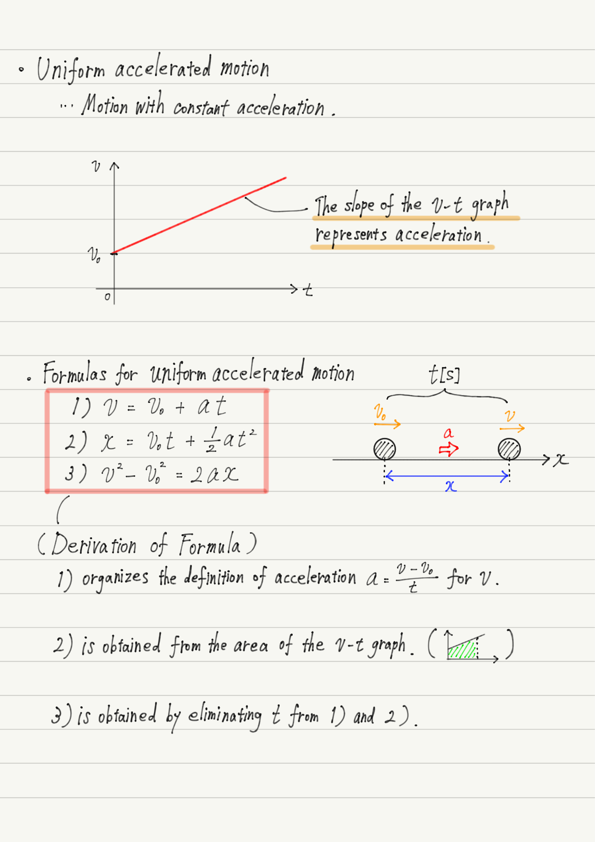 • Uniform accelerated motion
... Motion with constant acceleration.
v
The slope of the v-t graph
represents acceleration.
v₀
0
t
• Formulas for uniform accelerated motion
t[s]
1) v = v₀ + at
2) x = v₀t + 1/2 at²
3) v² - v₀² = 2ax
v₀
v
a
x
x
(Derivation of Formula)
1) organizes the definition of acceleration a = (v - v₀)/t for v.
2) is obtained from the area of the v-t graph. ( )
3) is obtained by eliminating t from 1) and 2).